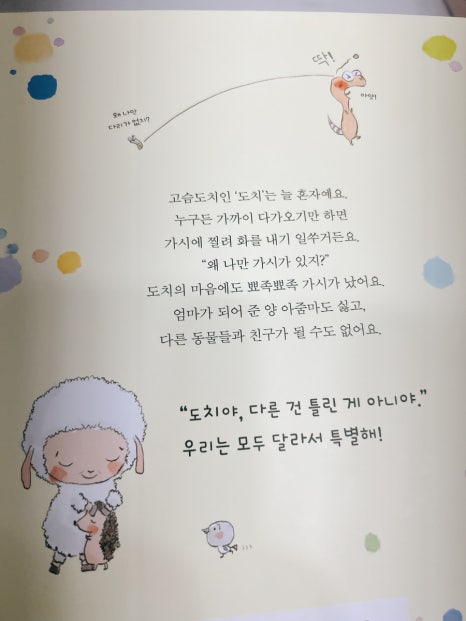 딱!
아얏!
왜 나만
다리가 없지?
고슴도치인 '도치'는 늘 혼자예요.
누구든 가까이 다가오기만 하면
가시에 찔려 화를 내기 일쑤거든요.
"왜 나만 가시가 있지?"
도치의 마음에도 뾰족뾰족 가시가 났어요.
엄마가 되어 준 양 아줌마도 싫고,
다른 동물들과 친구가 될 수도 없어요.
"도치야, 다른 건 틀린 게 아니야."
우리는 모두 달라서 특별해!